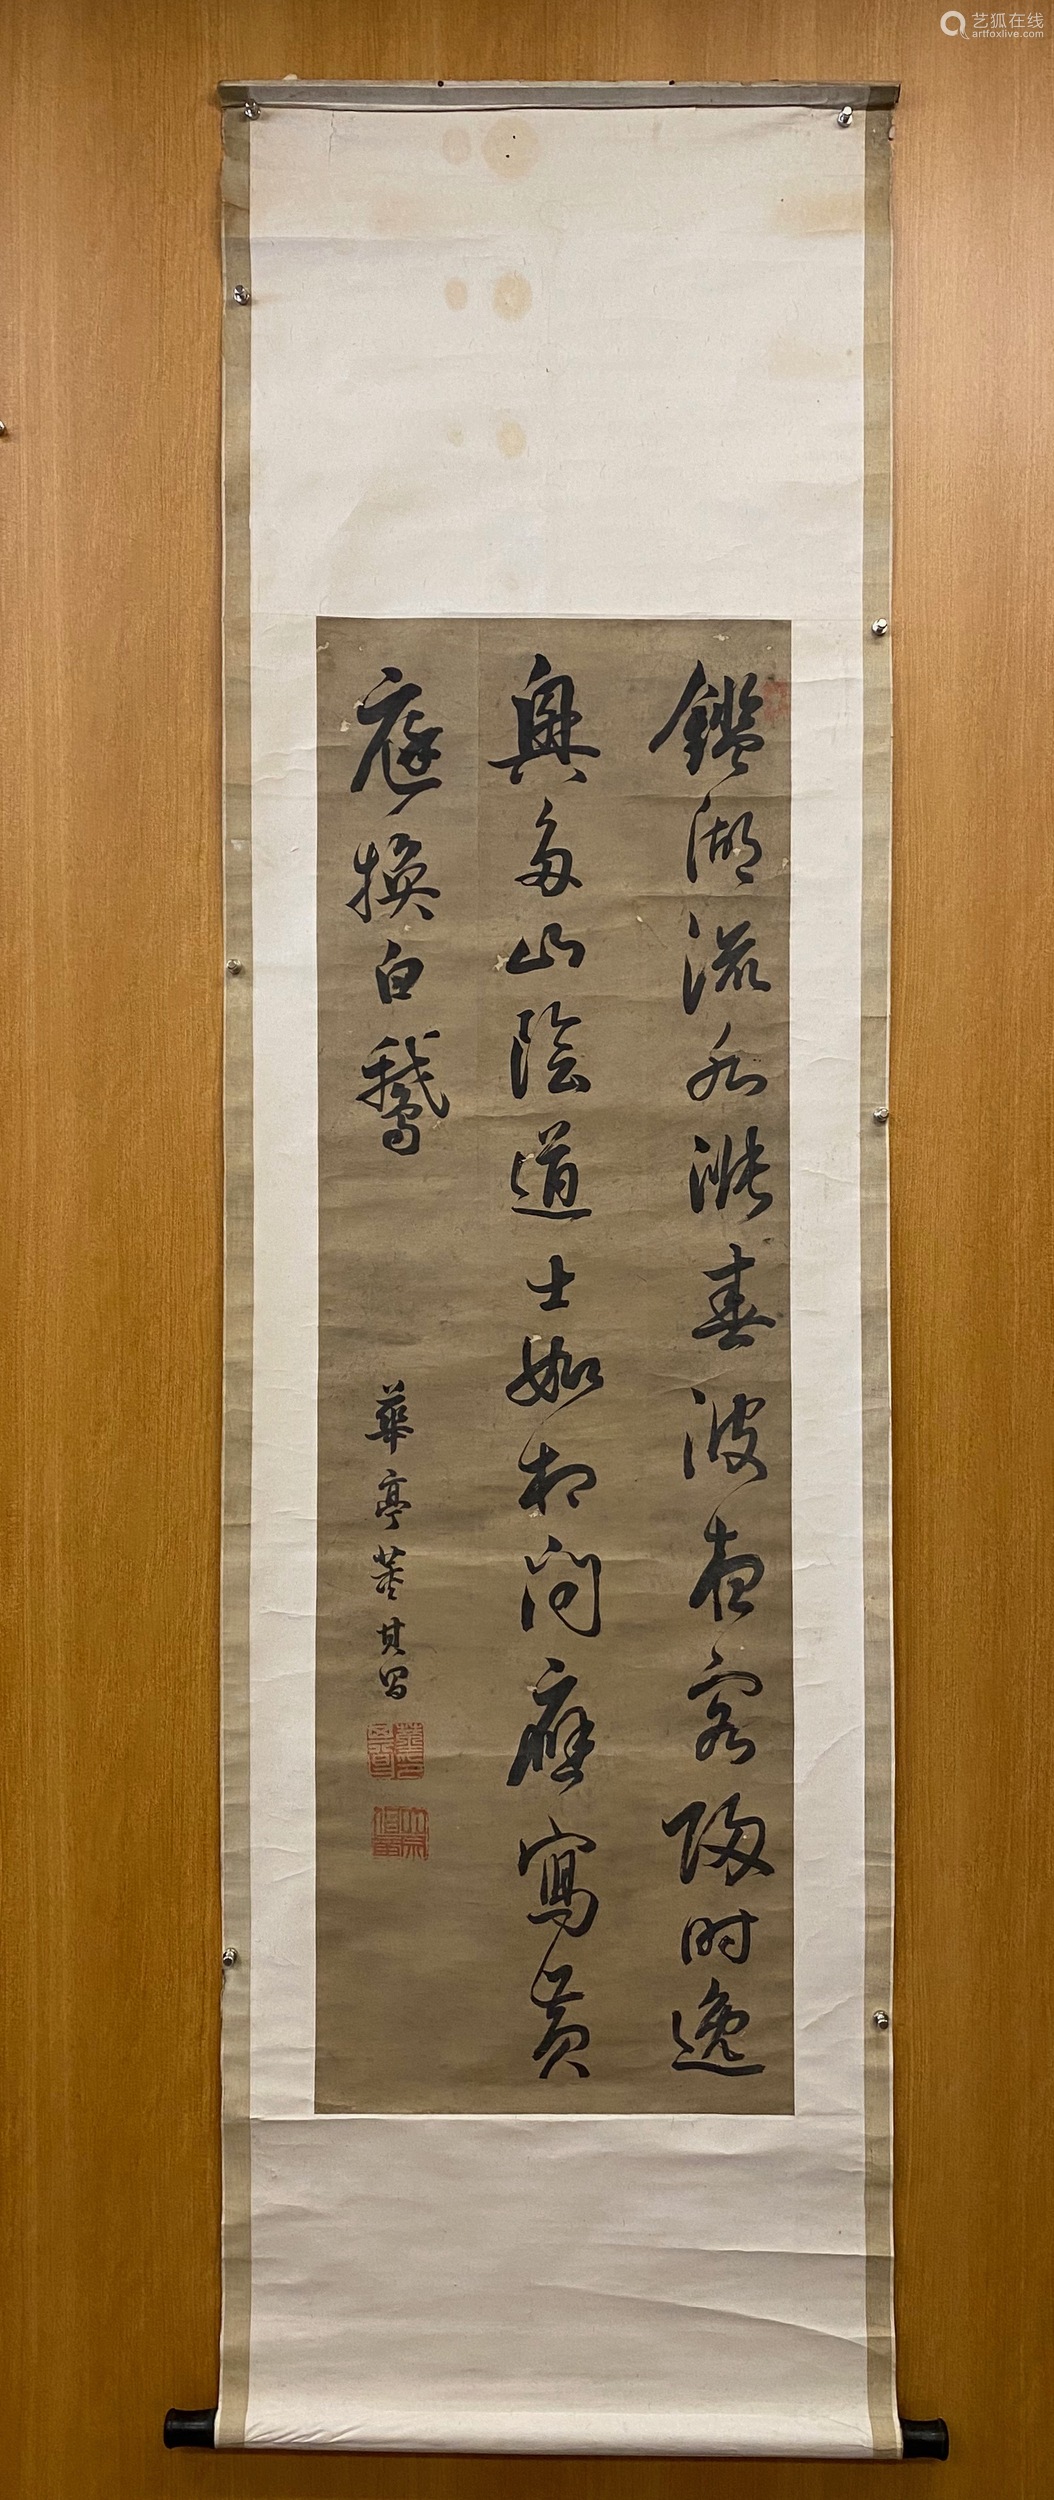 鑑湖流水漾春波夜客歸時逸
興多山陰道士如相問應寫黃
庭換白鵝
華亭董其昌
艺狐在线
artfoxlive.com